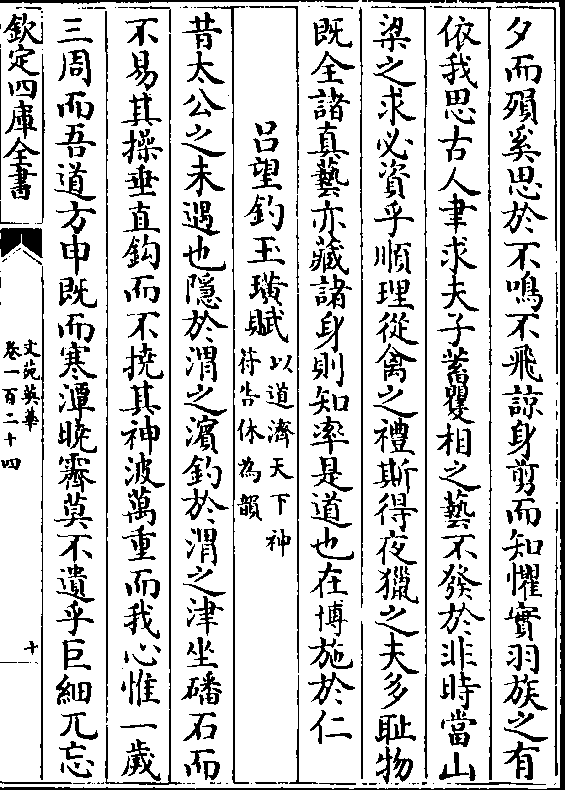 夕而殞奚思於不鳴不飛諒身剪而知懼實羽族之有
依我思古人聿求夫子蓄矍相之藝不發於非時當山
梁之求必資乎順理從禽之禮斯得夜獵之夫多耻物
既全諸真藝亦藏諸身則知率是道也在博施於仁
呂望釣玉璜賦以道濟天下神
符告休為韻
昔太公之未遇也隱於渭之濱釣於渭之津坐磻石而
不易其操垂直鈎而不撓其神波萬重而我心惟一歲
三周而吾道方申既而寒潭曉霽莫不遺乎巨細兀忘
欽定四庫全書
文苑英華
卷一百二十四
十